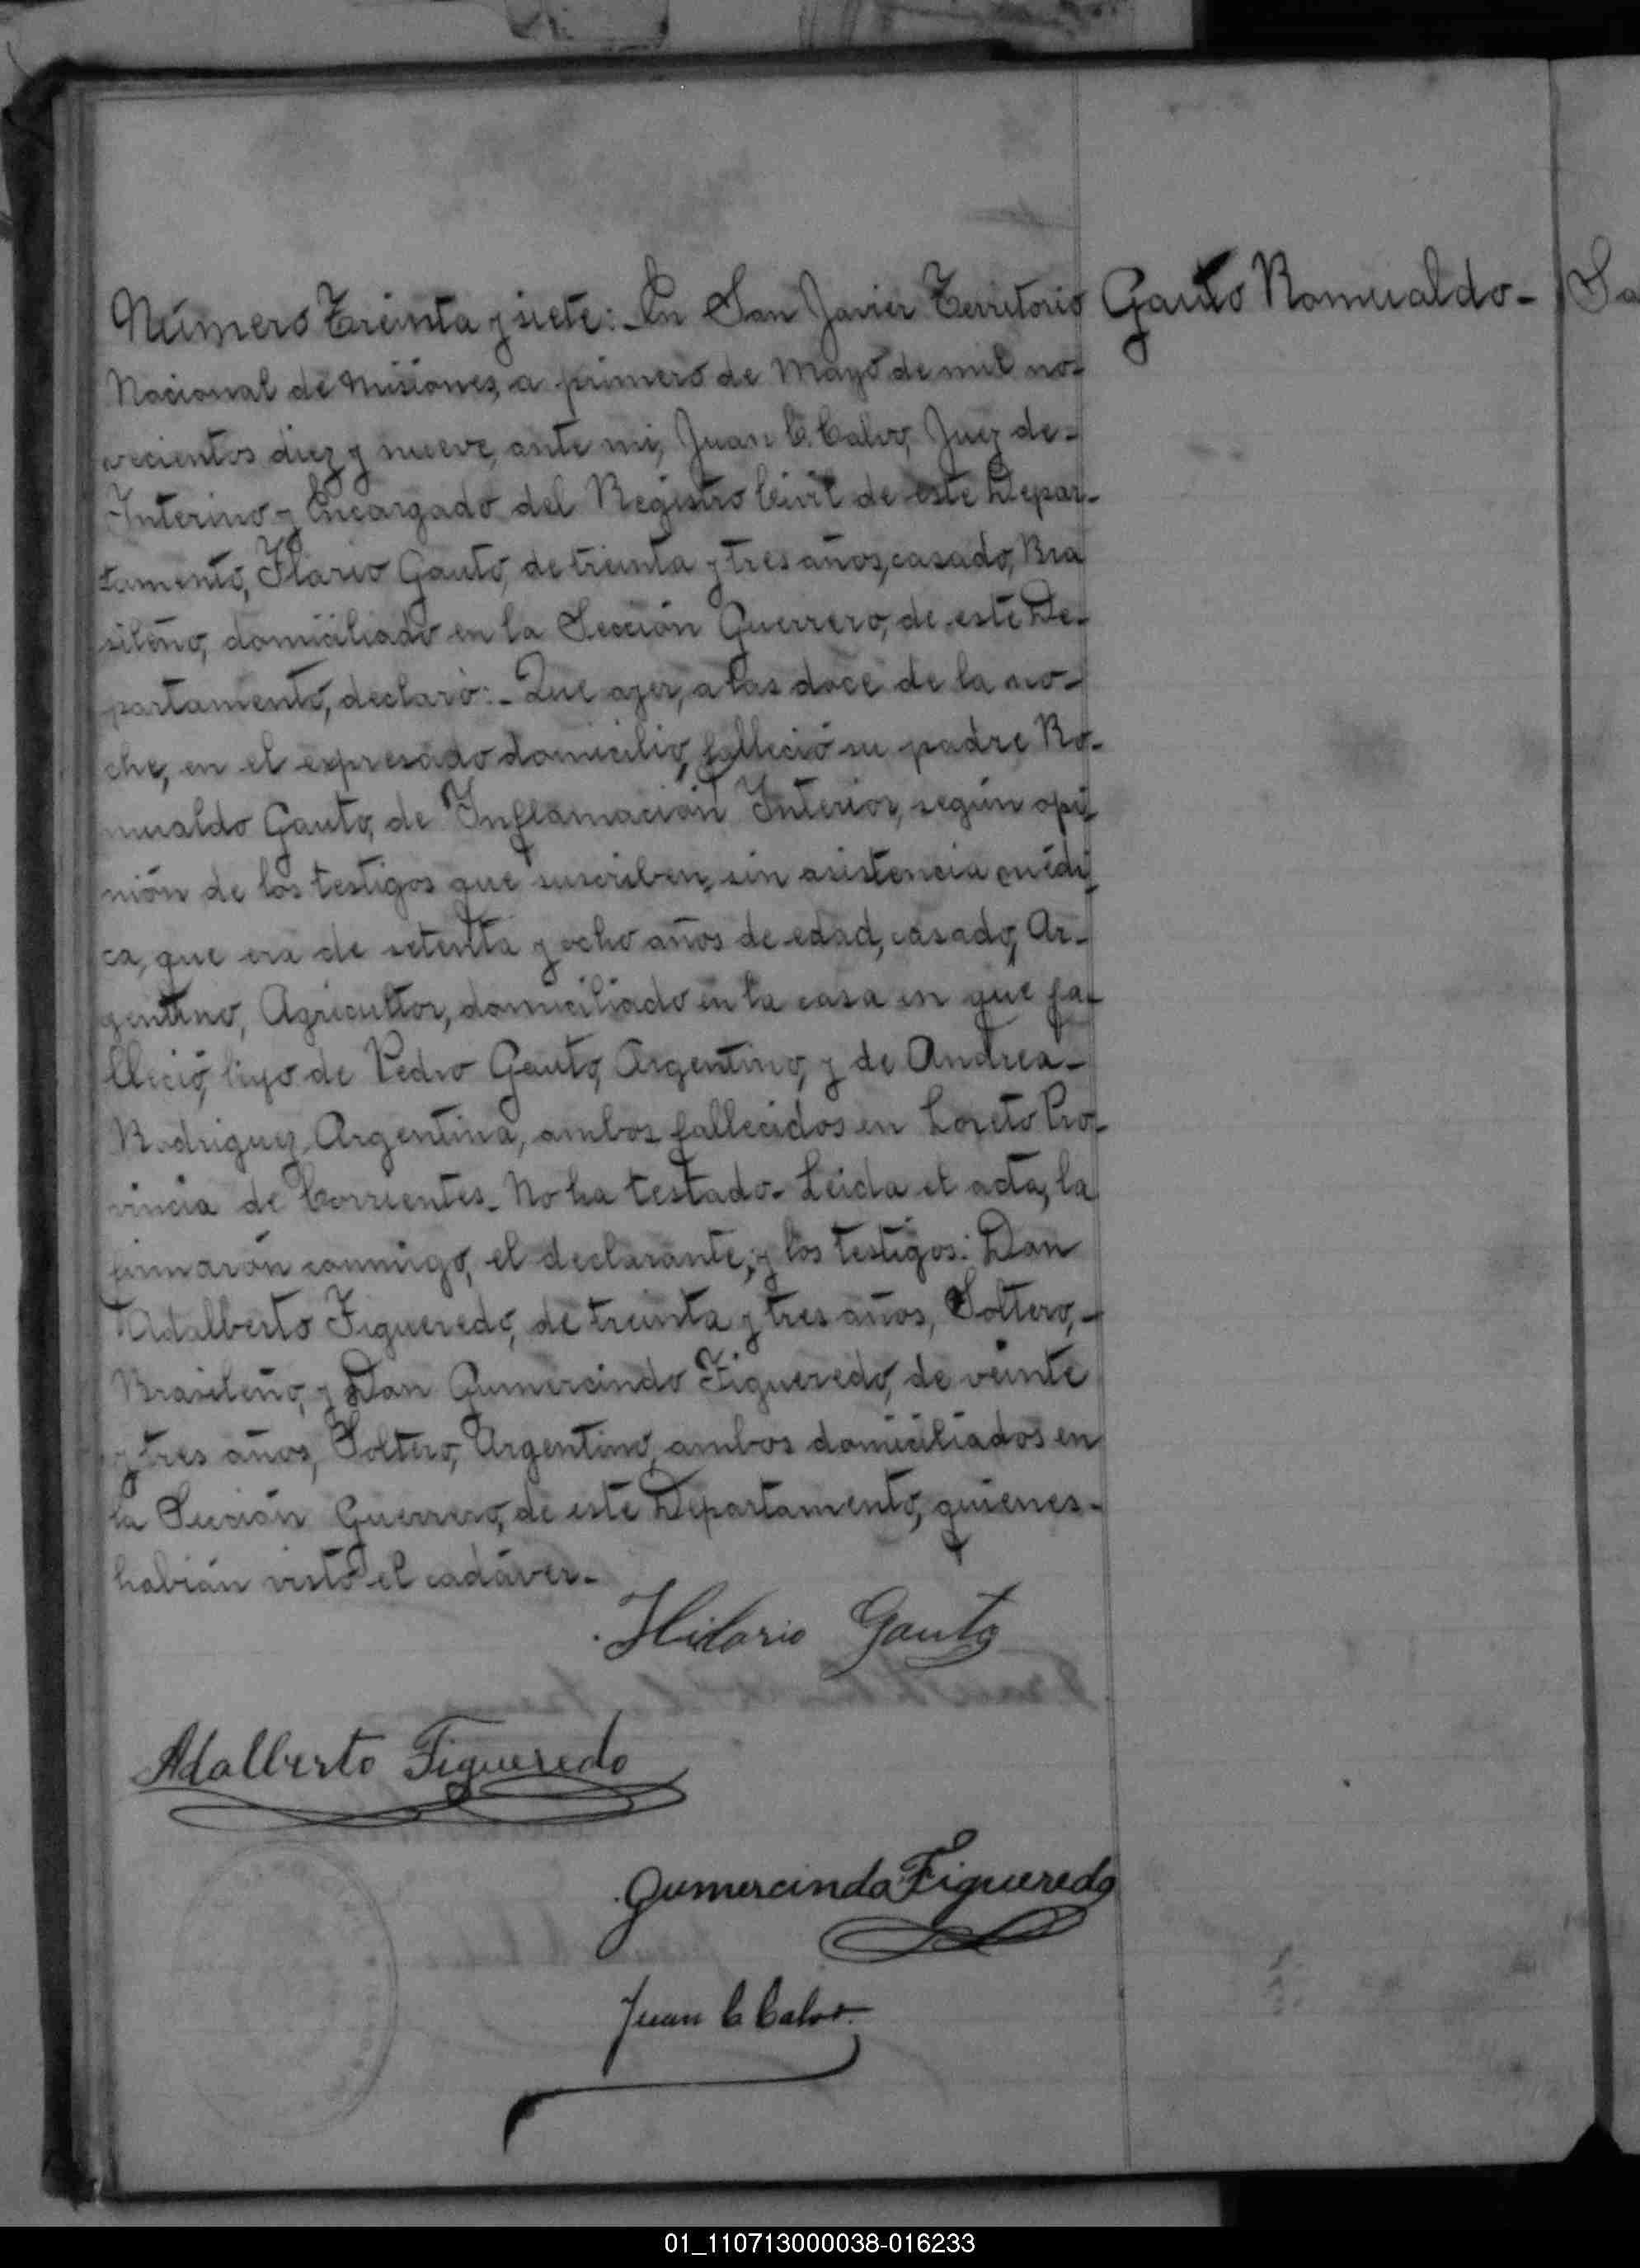 Número Treinta y siete:- En San Javier Territorio
Gauto Romualdo-
Nacional de Misiones, a primero de Mayo de mil no-
vecientos diez y nueve, ante mi, Juan C. Calvo, Juez de-
Interino y Encargado del Registro Civil de este Depar-
tamento, Ilario Gauto, de treinta y tres años, casado, Bra
sileño, domiciliado en la Sección Guerrero, de este De-
partamento, declaró:- Que ayer, a las doce de la no-
che, en el expresado domicilio, falleció su padre Ro-
mualdo Gauto, de Inflamación Interior, según opi-
nión de los testigos que suscriben, sin asistencia médi-
ca, que era de setenta y ocho años de edad, casado, Ar-
gentino, Agricultor, domiciliado en la casa en que fa-
lleció, hijo de Pedro Gauto, Argentino, y de Andrea-
Rodriguez, Argentina, ambos fallecidos en Loreto Pro-
vincia de Corrientes- No ha testado- Leida el acta, la
firmarón conmigo, el declarante, y los testigos: Don
Adalberto Figueredo, de treinta y tres años, Soltero,-
Brasileño, y Don Gumercindo Figueredo, de veinte
y tres años, Soltero, Argentino, ambos domiciliados en
la Sección Guerrero, de este Departamento, quienes-
habián visto el cadáver-
Hilario Gauto
Adalberto Figueredo
Gumercindo Figueredo
Juan C Calvo.
01_110713000038-016233